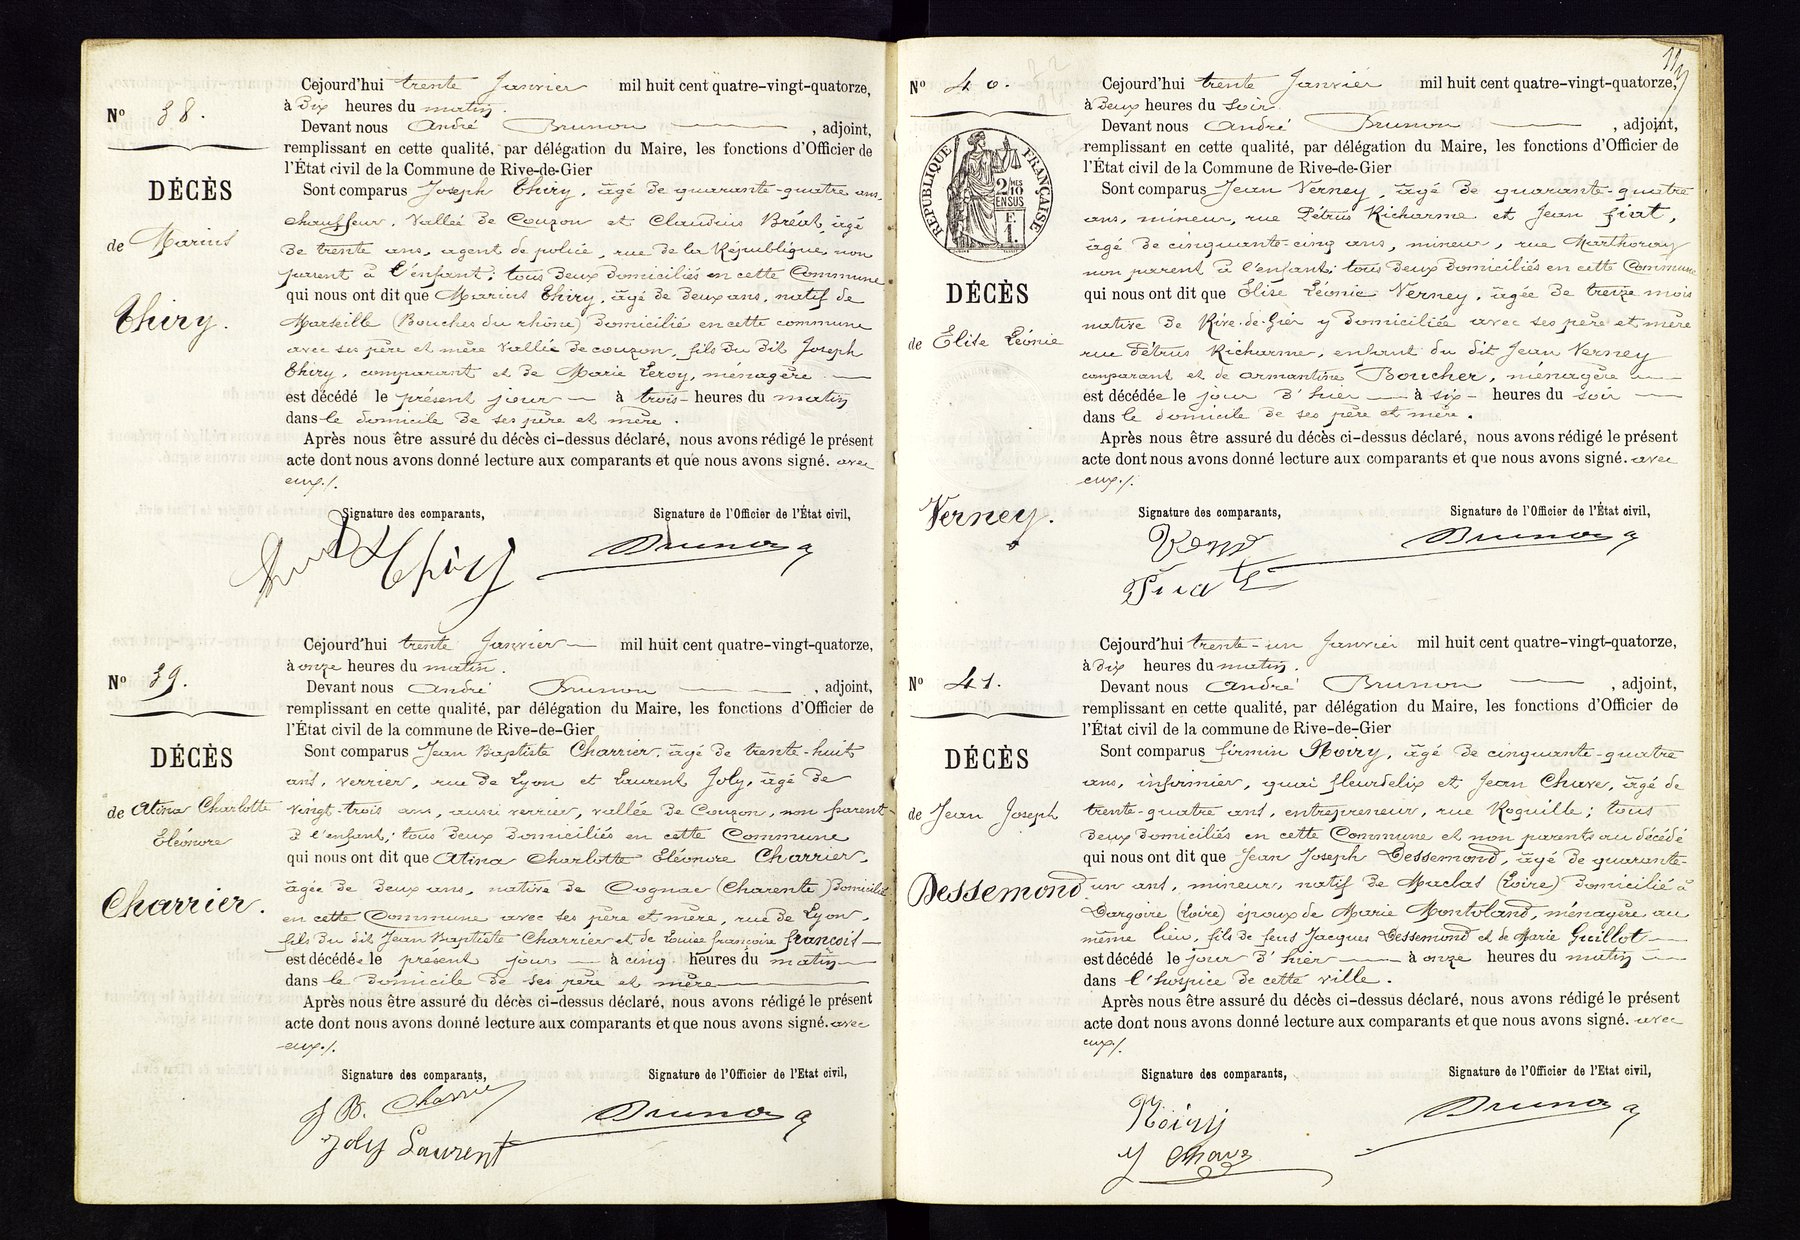 Nº 38.
DÉCÈS
de Marius
Thiry.
Cejourd'hui trente Janvier mil huit cent quatre-vingt-quatorze,
à Dix heures du matin.
Devant nous André Brunon , adjoint,
remplissant en cette qualité, par délégation du Maire, les fonctions d'Officier de
l'État civil de la Commune de Rive-de-Gier
Sont comparus Joseph Thiry, âgé de quarante-quatre ans,
chauffeur, Vallée de Couzon et Claudius Bréat, âgé
de trente ans, agent de police, rue de la République, non
parent à l'enfant; tous deux domiciliés en cette Commune
qui nous ont dit que Marius Thiry, âgé de deux ans, natif de
Marseille (Bouches du rhône) domicilié en cette commune
avec ses père et mère Vallée de couzon, fils du dit Joseph
Thiry, comparant et de Marie Leroy, ménagère
est décédé le présent jour à trois heures du matin
dans le domicile de ses père et mère.
Après nous être assuré du décès ci-dessus déclaré, nous avons rédigé le présent
acte dont nous avons donné lecture aux comparants et que nous avons signé. avec
eux./.
Signature des comparants, Signature de l'Officier de l'État civil,
Thiry Brunon
Nº 39.
DÉCÈS
de Atina Charlotte
Eléonore
Charrier.
Cejourd'hui trente Janvier mil huit cent quatre-vingt-quatorze,
à onze heures du matin.
Devant nous André Brunon , adjoint,
remplissant en cette qualité, par délégation du Maire, les fonctions d'Officier de
l'État civil de la commune de Rive-de-Gier
Sont comparus Jean Baptiste Charrier, âgé de trente-huit
ans, verrier, rue de Lyon et Laurent Joly, âgé de
vingt-trois ans, aussi verrier, vallée de Couzon, non parent
à l'enfant; tous deux domiciliés en cette Commune
qui nous ont dit que Atina Charlotte Eléonore Charrier,
âgée de deux ans, native de Cognac (Charente) domiciliée
en cette Commune avec ses père et mère, rue de Lyon,
fils du dit Jean Baptiste Charrier et de Louise françoise françois
est décédée le présent jour à cinq heures du matin
dans le domicile de ses père et mère
Après nous être assuré du décès ci-dessus déclaré, nous avons rédigé le présent
acte dont nous avons donné lecture aux comparants et que nous avons signé. avec
eux./.
Signature des comparants, Signature de l'Officier de l'Etat civil,
J B. Charrier Brunon
Joly Laurent
Nº 40.
RÉPUBLIQUE FRANÇAISE
2/10 EN SUS
F.
1.
DÉCÈS
de Élise Léonie
Verney.
Cejourd'hui trente Janvier mil huit cent quatre-vingt-quatorze,
à Deux heures du soir.
Devant nous André Brunon , adjoint,
remplissant en cette qualité, par délégation du Maire, les fonctions d'Officier de
l'État civil de la Commune de Rive-de-Gier
Sont comparus Jean Verney, âgé de quarante-quatre
ans, mineur, rue Pétrus Richarme et Jean fiat,
âgé de cinquante-cinq ans, mineur, rue Marthoray
non parent à l'enfant; tous deux domiciliés en cette Commune
qui nous ont dit que Elise Léonie Verney, âgée de treize mois
native de Rive-de-Gier y domiciliée avec ses père et mère
rue Pétrus Richarme, enfant du dit Jean Verney
comparant et de armantine Boucher, ménagère
est décédée le jour d'hier à six heures du soir
dans le domicile de ses père et mère.
Après nous être assuré du décès ci-dessus déclaré, nous avons rédigé le présent
acte dont nous avons donné lecture aux comparants et que nous avons signé. avec
eux./.
Signature des comparants, Signature de l'Officier de l'État civil,
Brunon
Nº 41.
DÉCÈS
de Jean Joseph
Dessemond
Cejourd'hui trente-un Janvier mil huit cent quatre-vingt-quatorze,
à Dix heures du matin.
Devant nous André Brunon , adjoint,
remplissant en cette qualité, par délégation du Maire, les fonctions d'Officier de
l'État civil de la commune de Rive-de-Gier
Sont comparus firmin Noiry, âgé de cinquante-quatre
ans, infirmier, quai fleurdelix et Jean Chave, âgé de
trente-quatre ans, entrepreneur, rue Roquille; tous
deux domiciliés en cette Commune et non parents au décédé
qui nous ont dit que Jean Joseph Dessemond, âgé de quarante-
un ans, mineur, natif de Maclas (Loire) domicilié à
Dargoire (Loire) époux de Marie Montoland, ménagère au
même lieu, fils de feus Jacques Dessemond et de Marie Guillot
est décédé le jour d'hier à onze heures du matin
dans l'hospice de cette ville.
Après nous être assuré du décès ci-dessus déclaré, nous avons rédigé le présent
acte dont nous avons donné lecture aux comparants et que nous avons signé. avec
eux./.
Signature des comparants, Signature de l'Officier de l'Etat civil,
Noiry Brunon
J Chave